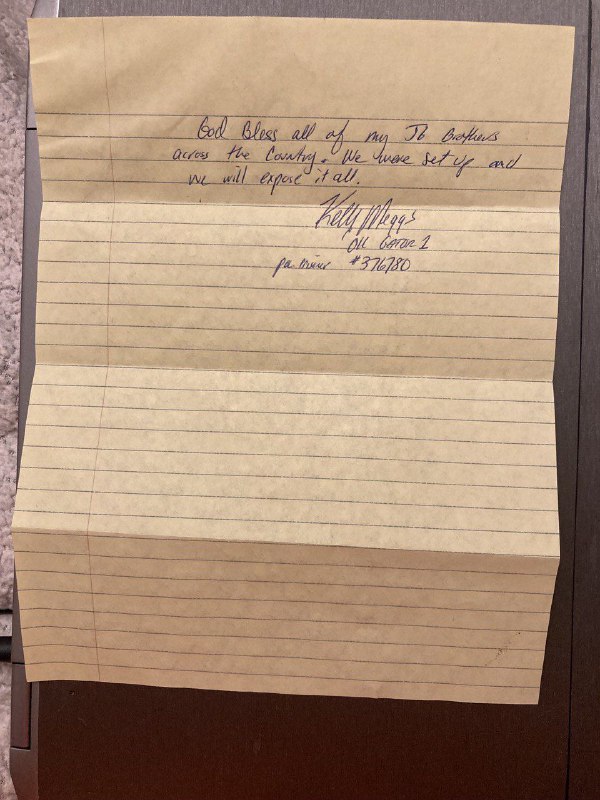 God Bless all of my J6 Brothers
across the Country. We were set up and
we will expose it all.
Kelly Meggs
OK GATOR 1
#376780